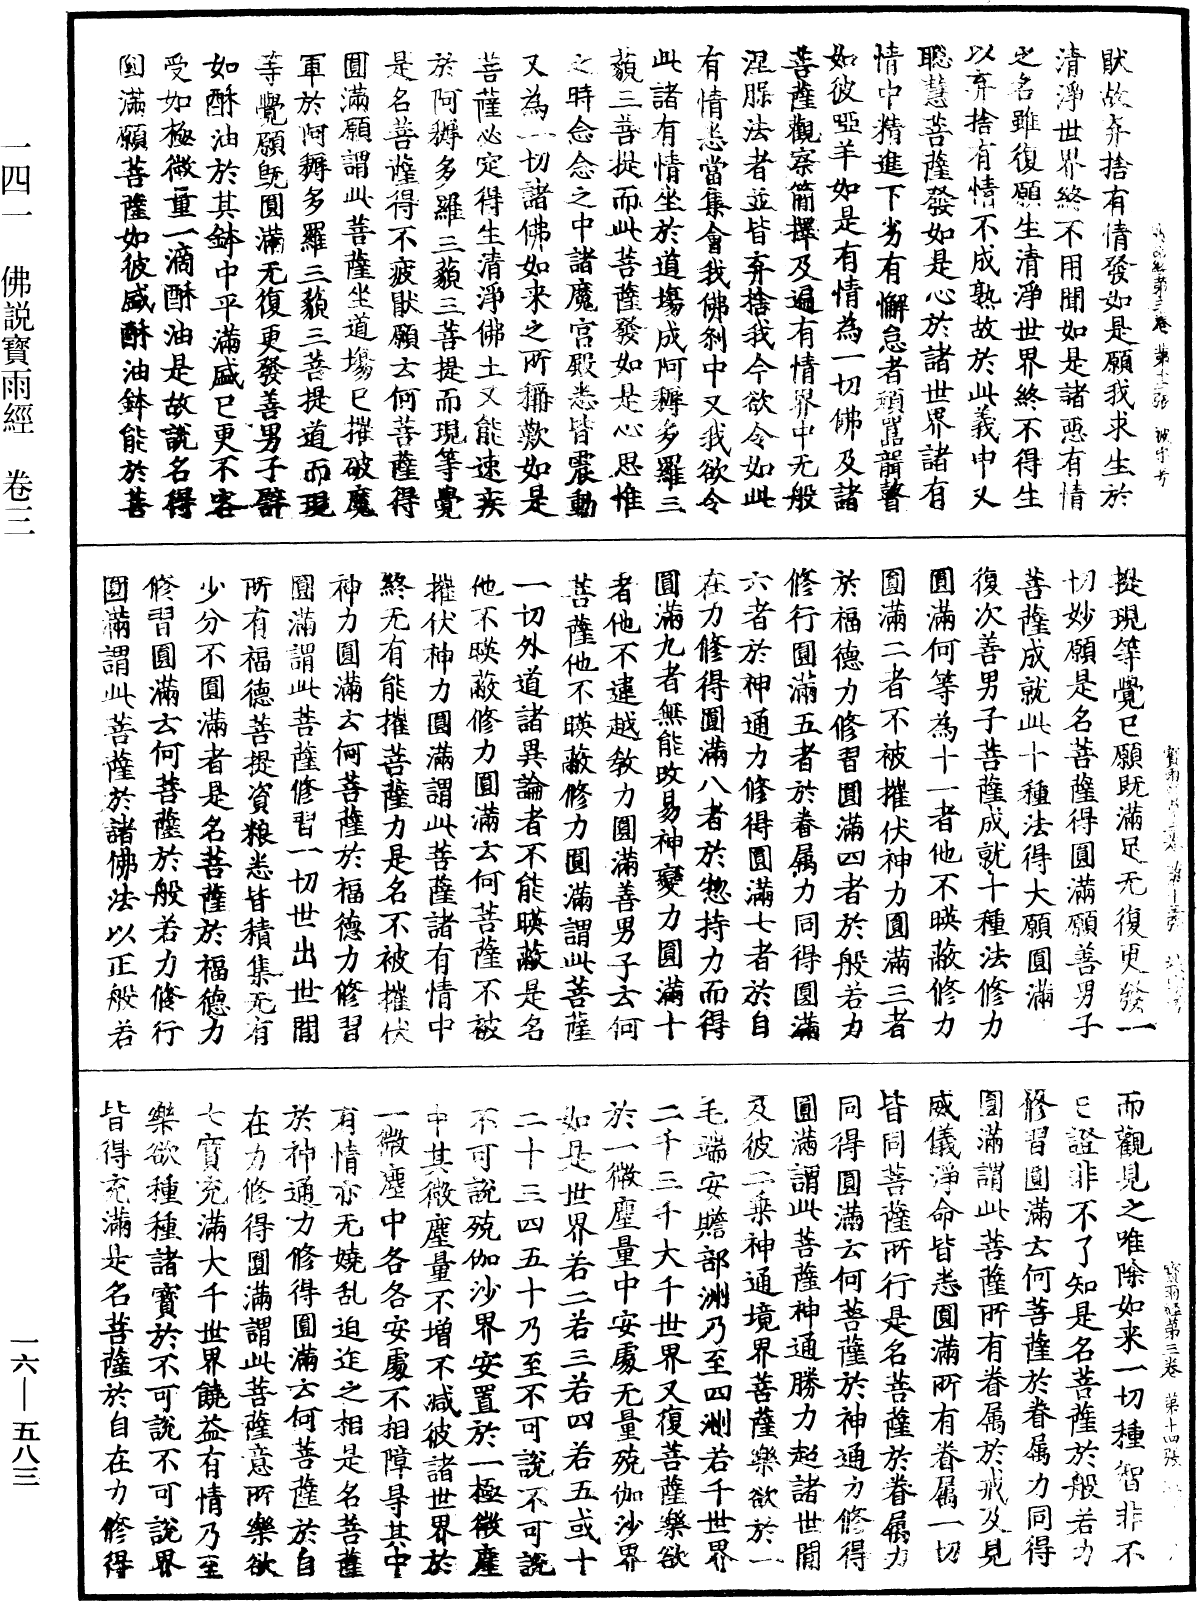 猒故弃捨有情發如是願我求生於
清淨世界終不用聞如是諸惡有情
之名雖復願生清淨世界終不得生
以弃捨有情不成熟故於此義中又
聡慧菩薩發如是心於諸世界諸有
情中精進下劣有懈怠者頑嚚聾瞽
如彼啞羊如是有情為一切佛及諸
菩薩觀察簡擇及遍有情界中无般
涅脲法者並皆弃捨我今欲令如此
有情悉當集會我佛刹中又我欲令
此諸有情坐於道場成阿耨多羅三
藐三菩提而此菩薩發如是心思惟
之時念念之中諸魔宮殿悉皆震動
又為一切諸佛如来之所稱歎如是
菩薩必定得生清淨佛土又能速疾
於阿耨多羅三藐三菩提而現等覺
是名菩薩得不疲猒願去何菩薩得
圓滿願謂此菩薩坐道場已摧破魔
軍於阿耨多羅三藐三菩提道而現
等覺願既圓滿无復更發善男子譬
如酥油於其鉢中平滿盛已更不容
受如極微量一滴酥油是故說名得
圓滿願菩薩如彼盛酥油鉢能於菩
提現等覺已願既滿足无復更發一
切妙願是名菩薩得圓滿願善男子
菩薩成就此十種法得大願圓滿
復次善男子菩薩成就十種法修力
圓滿何等為十一者他不暎蔽修力
圓滿二者不被摧伏神力圓滿三者
於福德力修習圓滿四者於般若力
修行圓滿五者於眷属力同得圓滿
六者於神通力修得圓滿七者於自
在力修得圓滿八者於惣持力而得
圓滿九者無能改易神變力圓滿十
者他不違越教力圓滿善男子去何
菩薩他不暎蔽修力圓滿謂此菩薩
一切外道諸異論者不能暎蔽是名
他不暎蔽修力圓滿去何菩薩不被
摧伏神力圓滿謂此菩薩諸有情中
終无有能摧菩薩力是名不被摧伏
神力圓滿去何菩薩於福德力修習
圓滿謂此菩薩修習一切世出世間
所有福德菩提資粮悉皆積集无有
少分不圓滿者是名菩薩於福德力
修習圓滿去何菩薩於般若力修行
圓滿謂此菩薩於諸佛法以正般若
而觀見之唯除如来一切種智非不
已證非不了知是名菩薩於般若力
修習圓滿去何菩薩於眷属力同得
圓滿謂此菩薩所有眷属於戒及見
威儀淨命皆悉圓滿所有眷属一切
皆同菩薩所行是名菩薩於眷属力
同得圓滿去何菩薩於神通力修得
圓滿謂此菩薩神通勝力起諸世間
及彼二乗神通境界菩薩樂欲於一
毛端安贍部洲乃至四洲若千世界
二千三千大千世界又復菩薩樂欲
於一微塵量中安處无量殑伽沙界
如是世界若二若三若四若五或十
二十三四五十乃至不可說不可說
不可說殑伽沙界安置於一極微塵
中其微塵量不增不减彼諸世界於
一微塵中各各安處不相障㝵其中
有情亦无嬈乱迫迮之相是名菩薩
於神通力修得圓滿去何菩薩於自
在力修得圓滿謂此菩薩意所樂欲
七寶充滿大千世界饒益有情乃至
樂欲種種諸寶於不可說不可說界
皆得充滿是名菩薩於自在力修得
寶雨經第三卷 第十四張
一四一 佛説寶雨經 卷三
一六—五八三